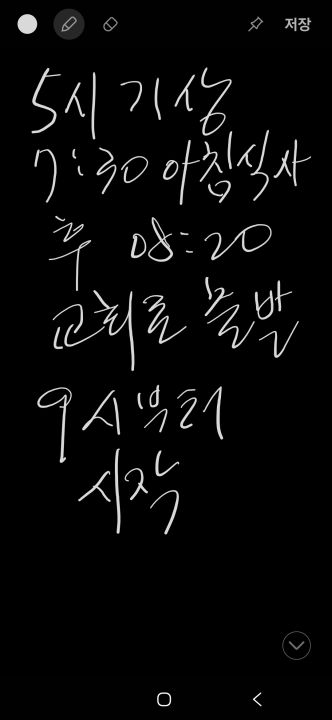 저장
5시 기상
7:30 아침식사
후 08:20
교회로 출발
9시부터
시작